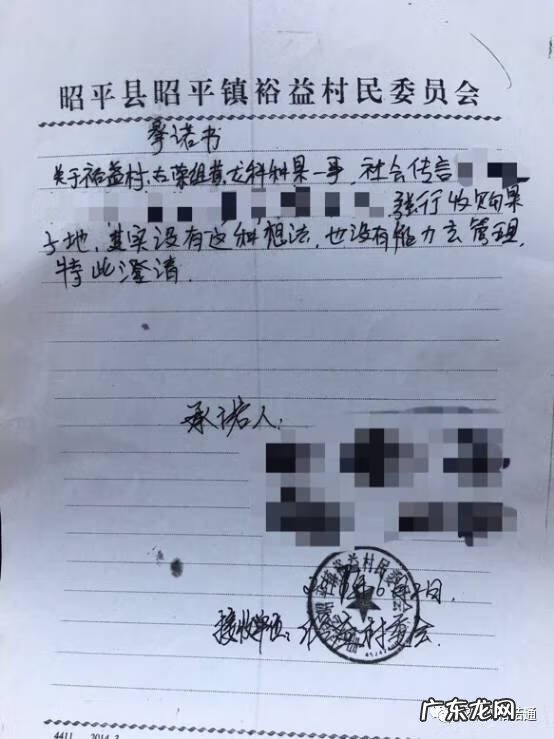 昭平县昭平镇裕益村民委员会
承诺书
关于裕益村太荣组黄龙科科果一事,社会传言
强行收购果
与地,其实没有这种想法,也没有能力去管理,
特此澄清.
承诺人:
年6月2日.
接收单位:裕益村委会.
4411 2014.3
广东龙网